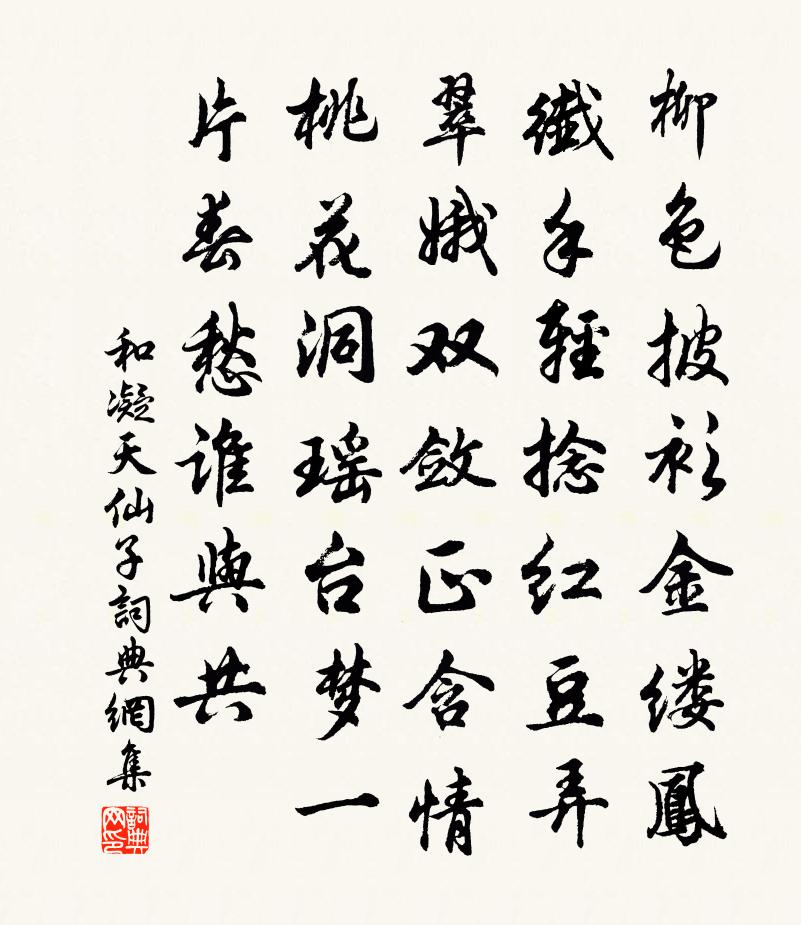 柳色披衫金缕鳳
纖手輕捻红豆弄
翠娥双敛正含情
桃花洞瑶台梦一
片春愁誰與共
和凝天仙子詞典網集
詞典網印